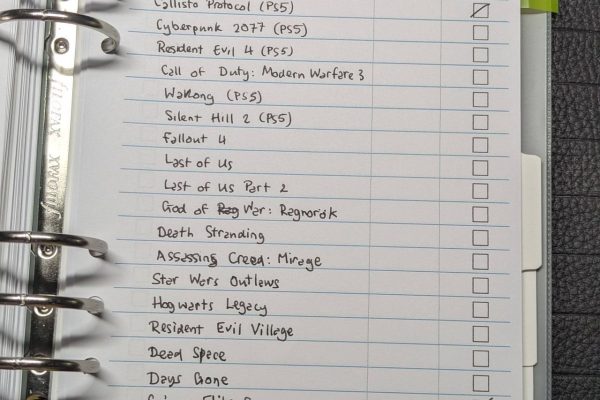 Callisto Protocol (PS5)
Cyberpunk 2077 (PS5)
Resident Evil 4 (PS5)
Call of Duty: Modern Warfare 3
(PS5)
Silent Hill 2 (PS5)
Fallout 4
Last of Us
Last of Us Part 2
God of Rag War: Ragnorök
Death Stranding
Assassins Creed: Mirage
Star Wars Outlaws
Hogwarts Legacy
Resident Evil Village
Dead Space
Days Gone
filofax